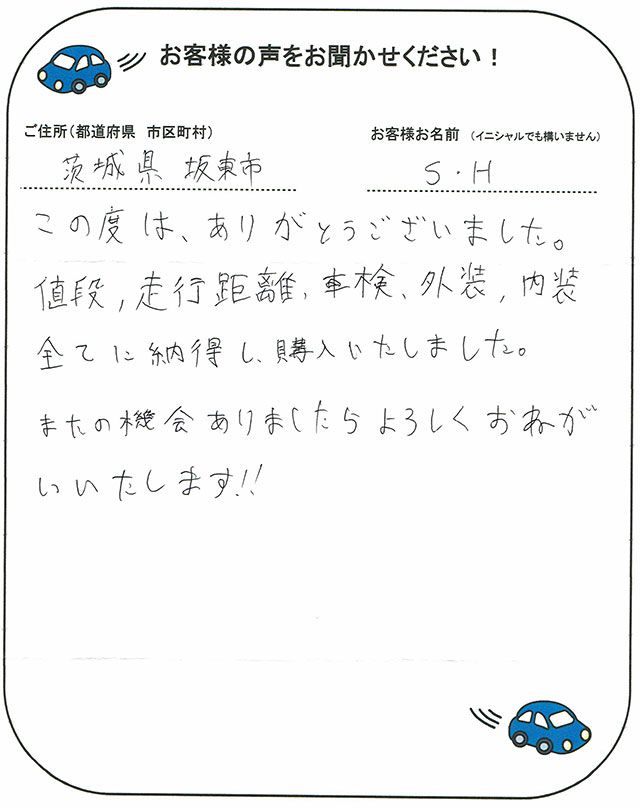 お客様の声をお聞かせください！
ご住所（都道府県　市区町村）
お客様お名前　（イニシャルでも構いません）
茨城県 坂東市
S・H
この度は、ありがとうございました。
値段，走行距離，車検、外装，内装
全てに納得し、購入いたしました。
またの機会ありましたらよろしくおねが
いいたします!!